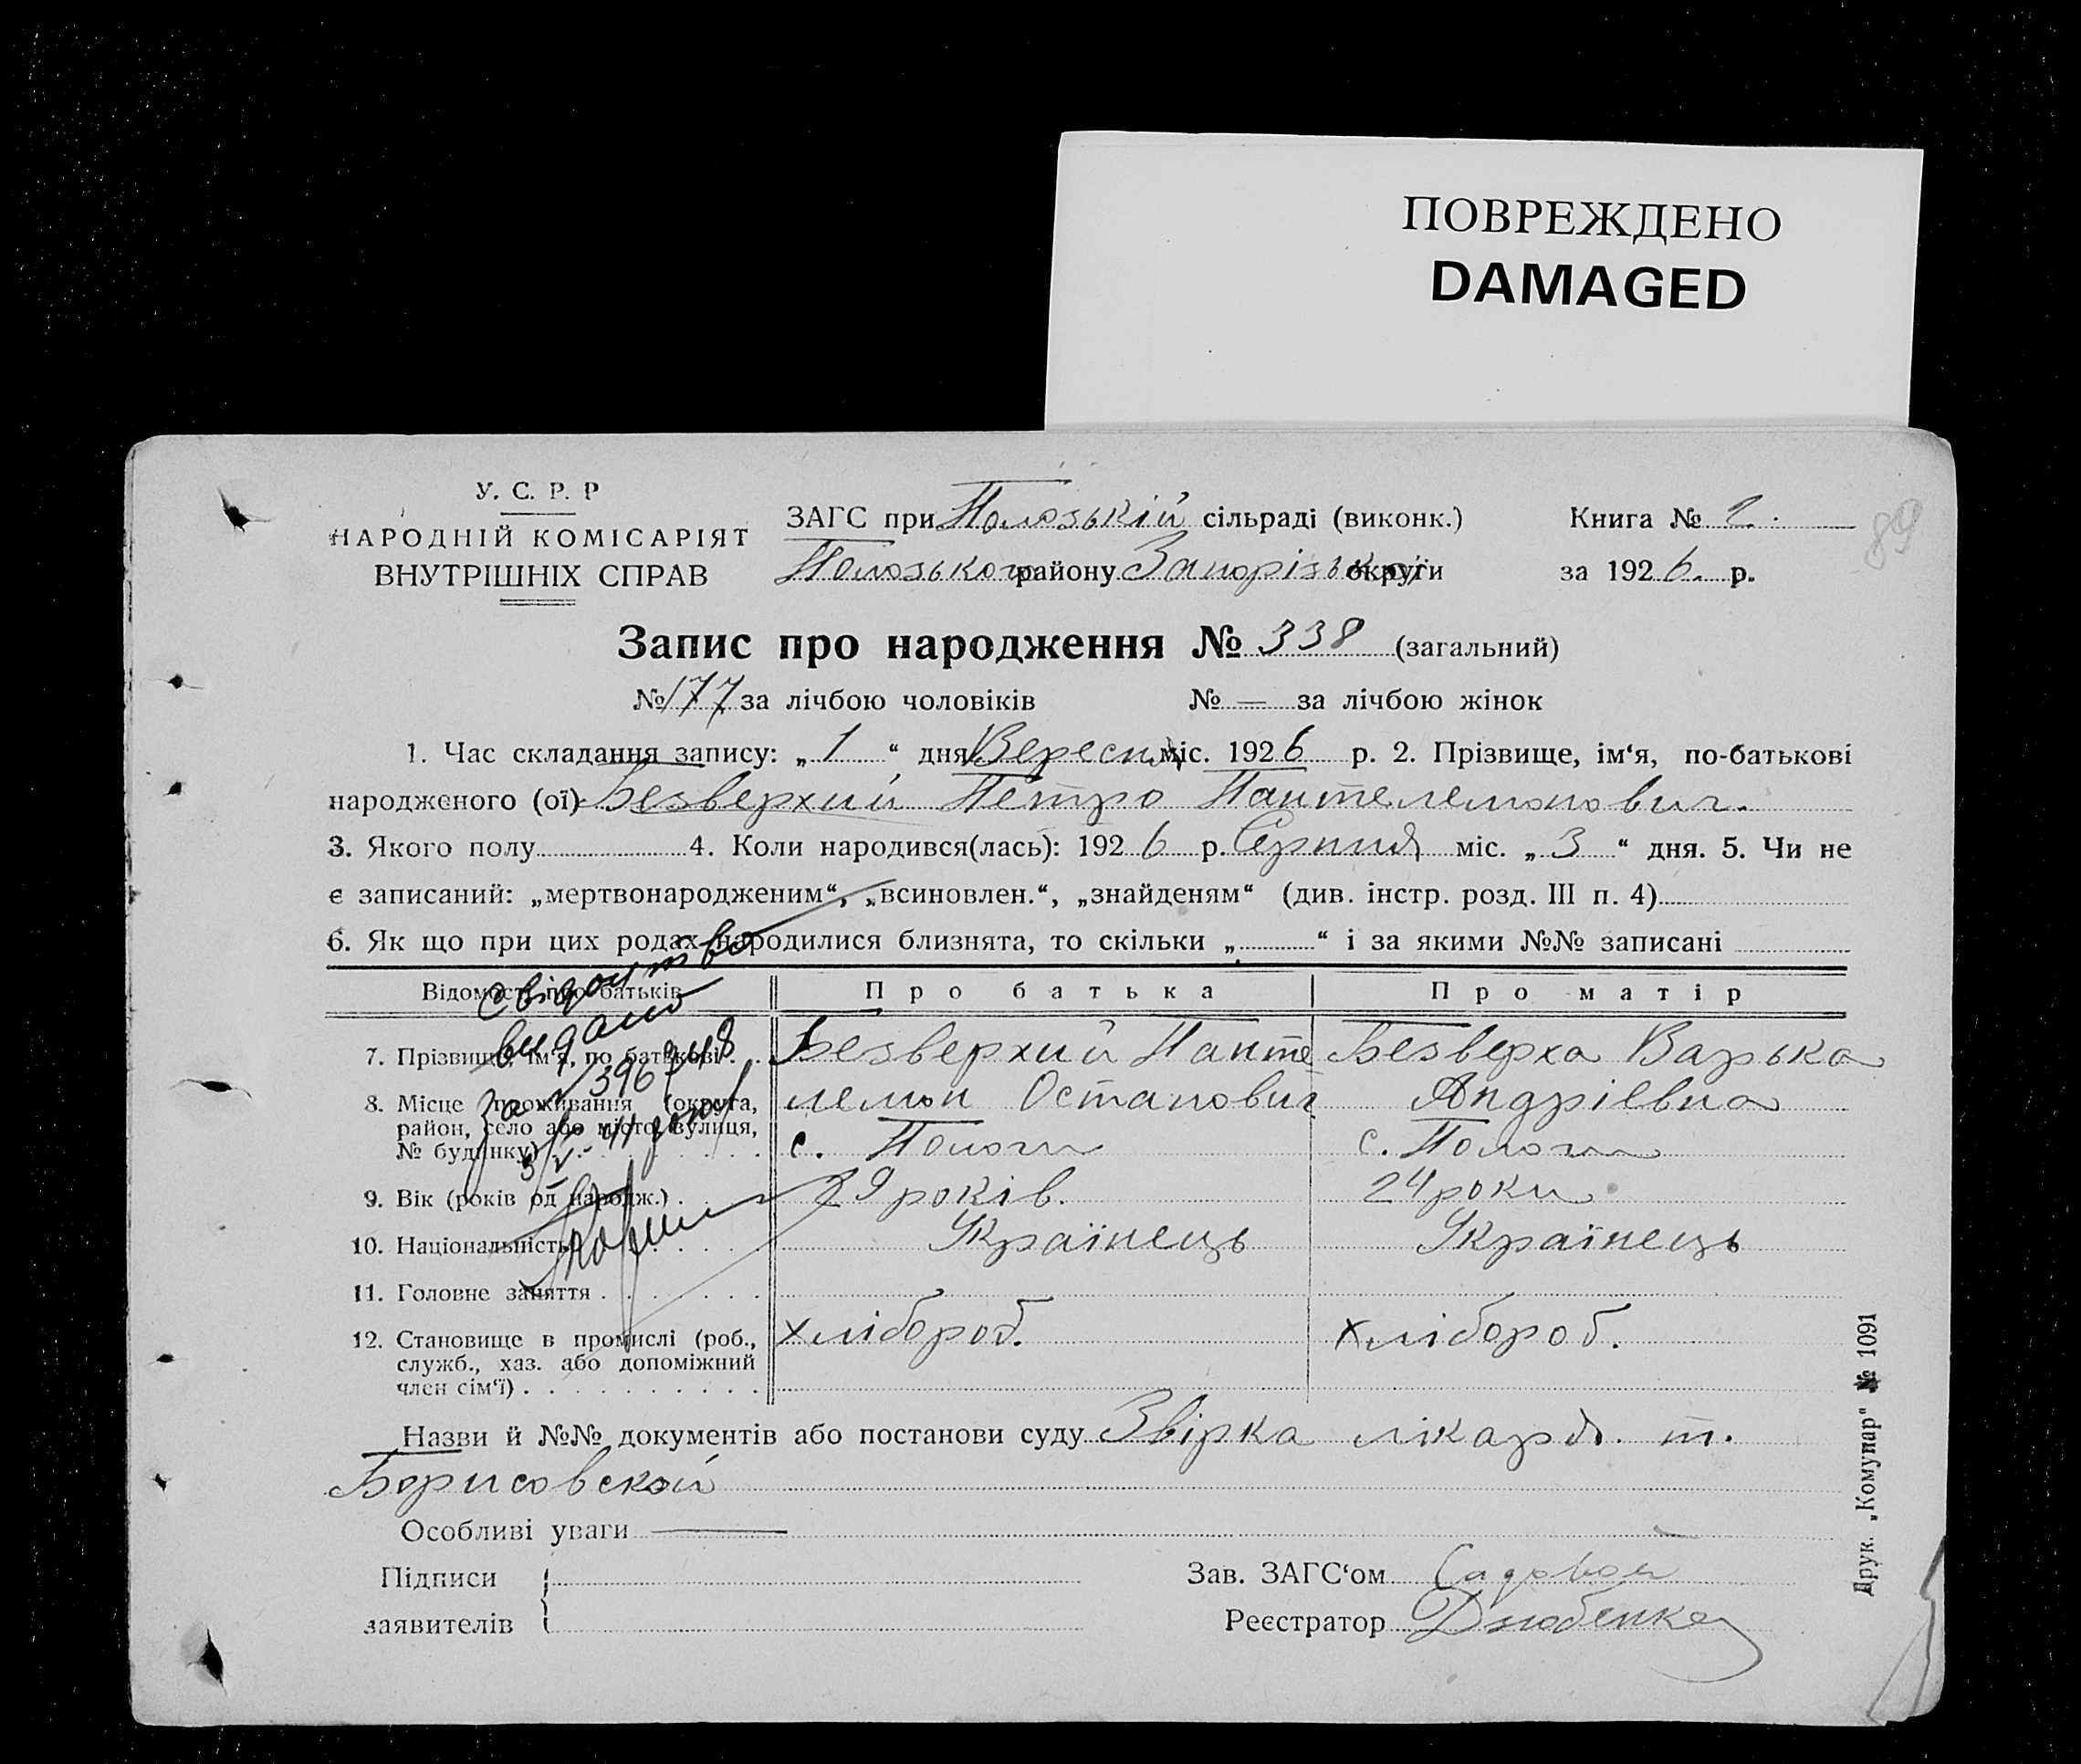 ПОВРЕЖДЕНО
DAMAGED
89
У. С. Р. Р
НАРОДНІЙ КОМІСАРІЯТ
ВНУТРІШНІХ СПРАВ
ЗАГС при Пологській сільраді (виконк.)
Пологського району Запорізької округи
Книга № 2.
за 1926. р.
Запис про народження № 338 (загальний)
№ 177 за лічбою чоловіків № — за лічбою жінок
1. Час складання запису: „1“ дня Вересня міс. 1926 р. 2. Прізвище, ім‘я, по-батькові
народженого (ої) Безверхий Петро Пантелемонович.
3. Якого полу 4. Коли народився(лась): 1926 р. Серпня міс. „3“ дня. 5. Чи не
є записаний: „мертвонародженим“, „всиновлен.“, „знайденям“ (див. інстр. розд. III п. 4)
6. Як що при цих родах народилися близнята, то скільки „ “ і за якими №№ записані
Відомості про батьків Про батька Про матір
7. Прізвище, ім‘я, по батькові Безверхий Панте Безверха Варька
лемон Остапович Андріевна
8. Місце проживання (округа,
район, село або місто, вулиця,
№ будинку) с. Пологи с. Пологи
9. Вік (років од народж.) 29 років. 24 роки
10. Національність Українець Українець
11. Головне заняття
12. Становище в промислі (роб., хлібороб. хлібороб.
служб., хаз. або допоміжний
член сім‘ї)
свідоцтво
видано
за № 396
Назви й №№ документів або постанови суду Звірка лікаря. т.
Борисовской
Особливі уваги —
Підписи
заявителів
Зав. ЗАГС‘ом Садовой
Реєстратор Дзюбенко
Друк. „Комунар“ № 1091